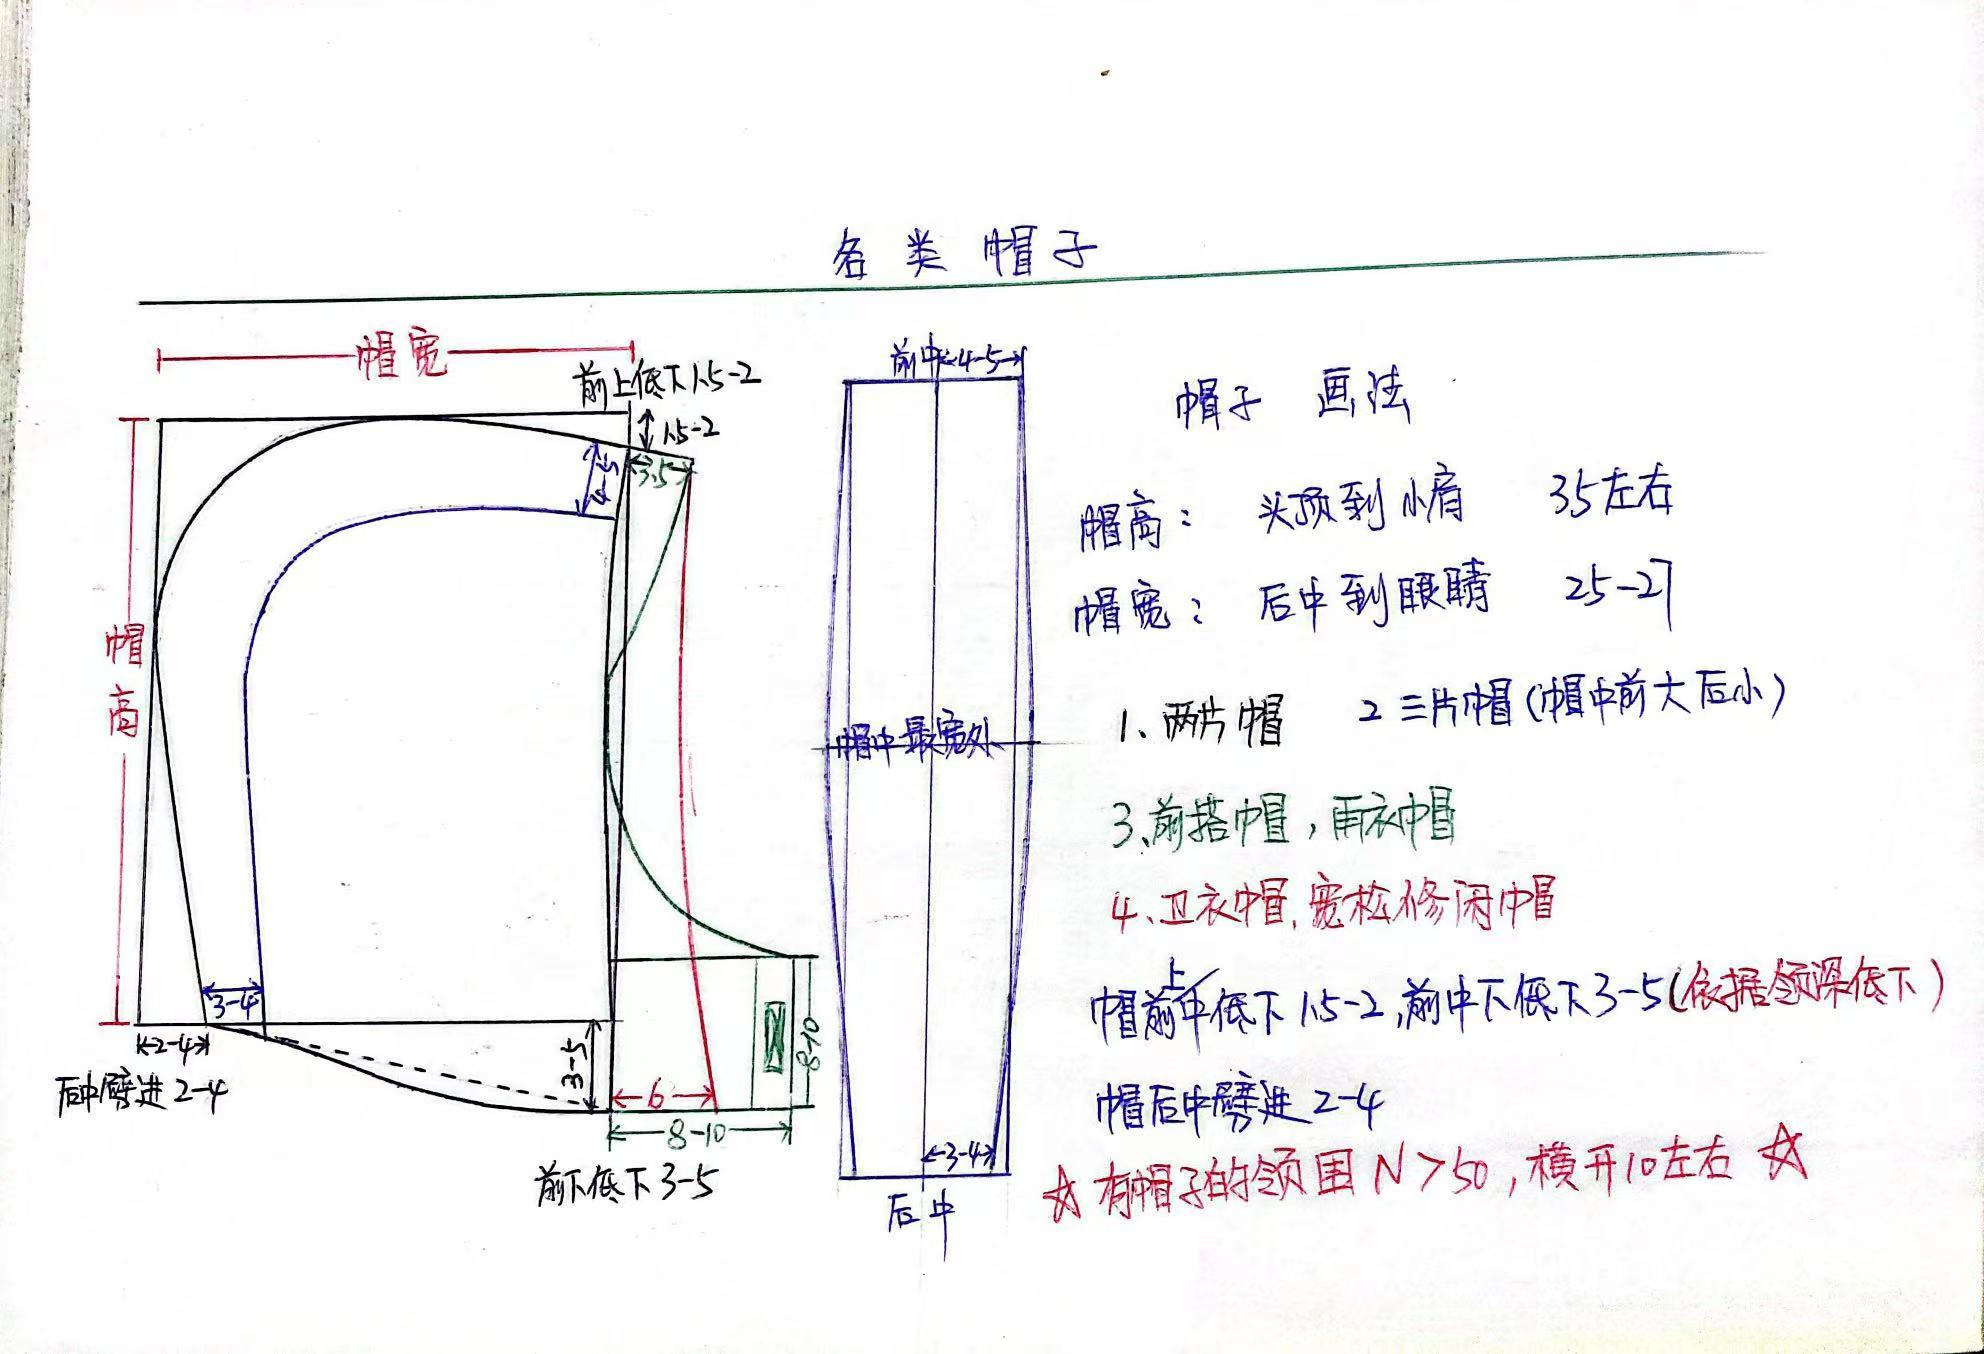 各类帽子
帽宽
前上低下1.5-2
1.5-2
3.5
4-5
帽高
3-4
2-4
后中劈进2-4
3-5
6
8-10
8-10
前下低下3-5
前中 4-5
帽中最宽处
3-4
后中
帽子 画法
帽高: 头顶到小肩 35左右
帽宽: 后中到眼睛 25-27
1、两片帽 2 三片帽(帽中前大后小)
3、前搭帽,雨衣帽
4、卫衣帽,宽松修闲帽
帽前上中低下1.5-2,前中下低下3-5(依据领深低下)
帽后中劈进2-4
☆有帽子的领围N>50,横开10左右☆